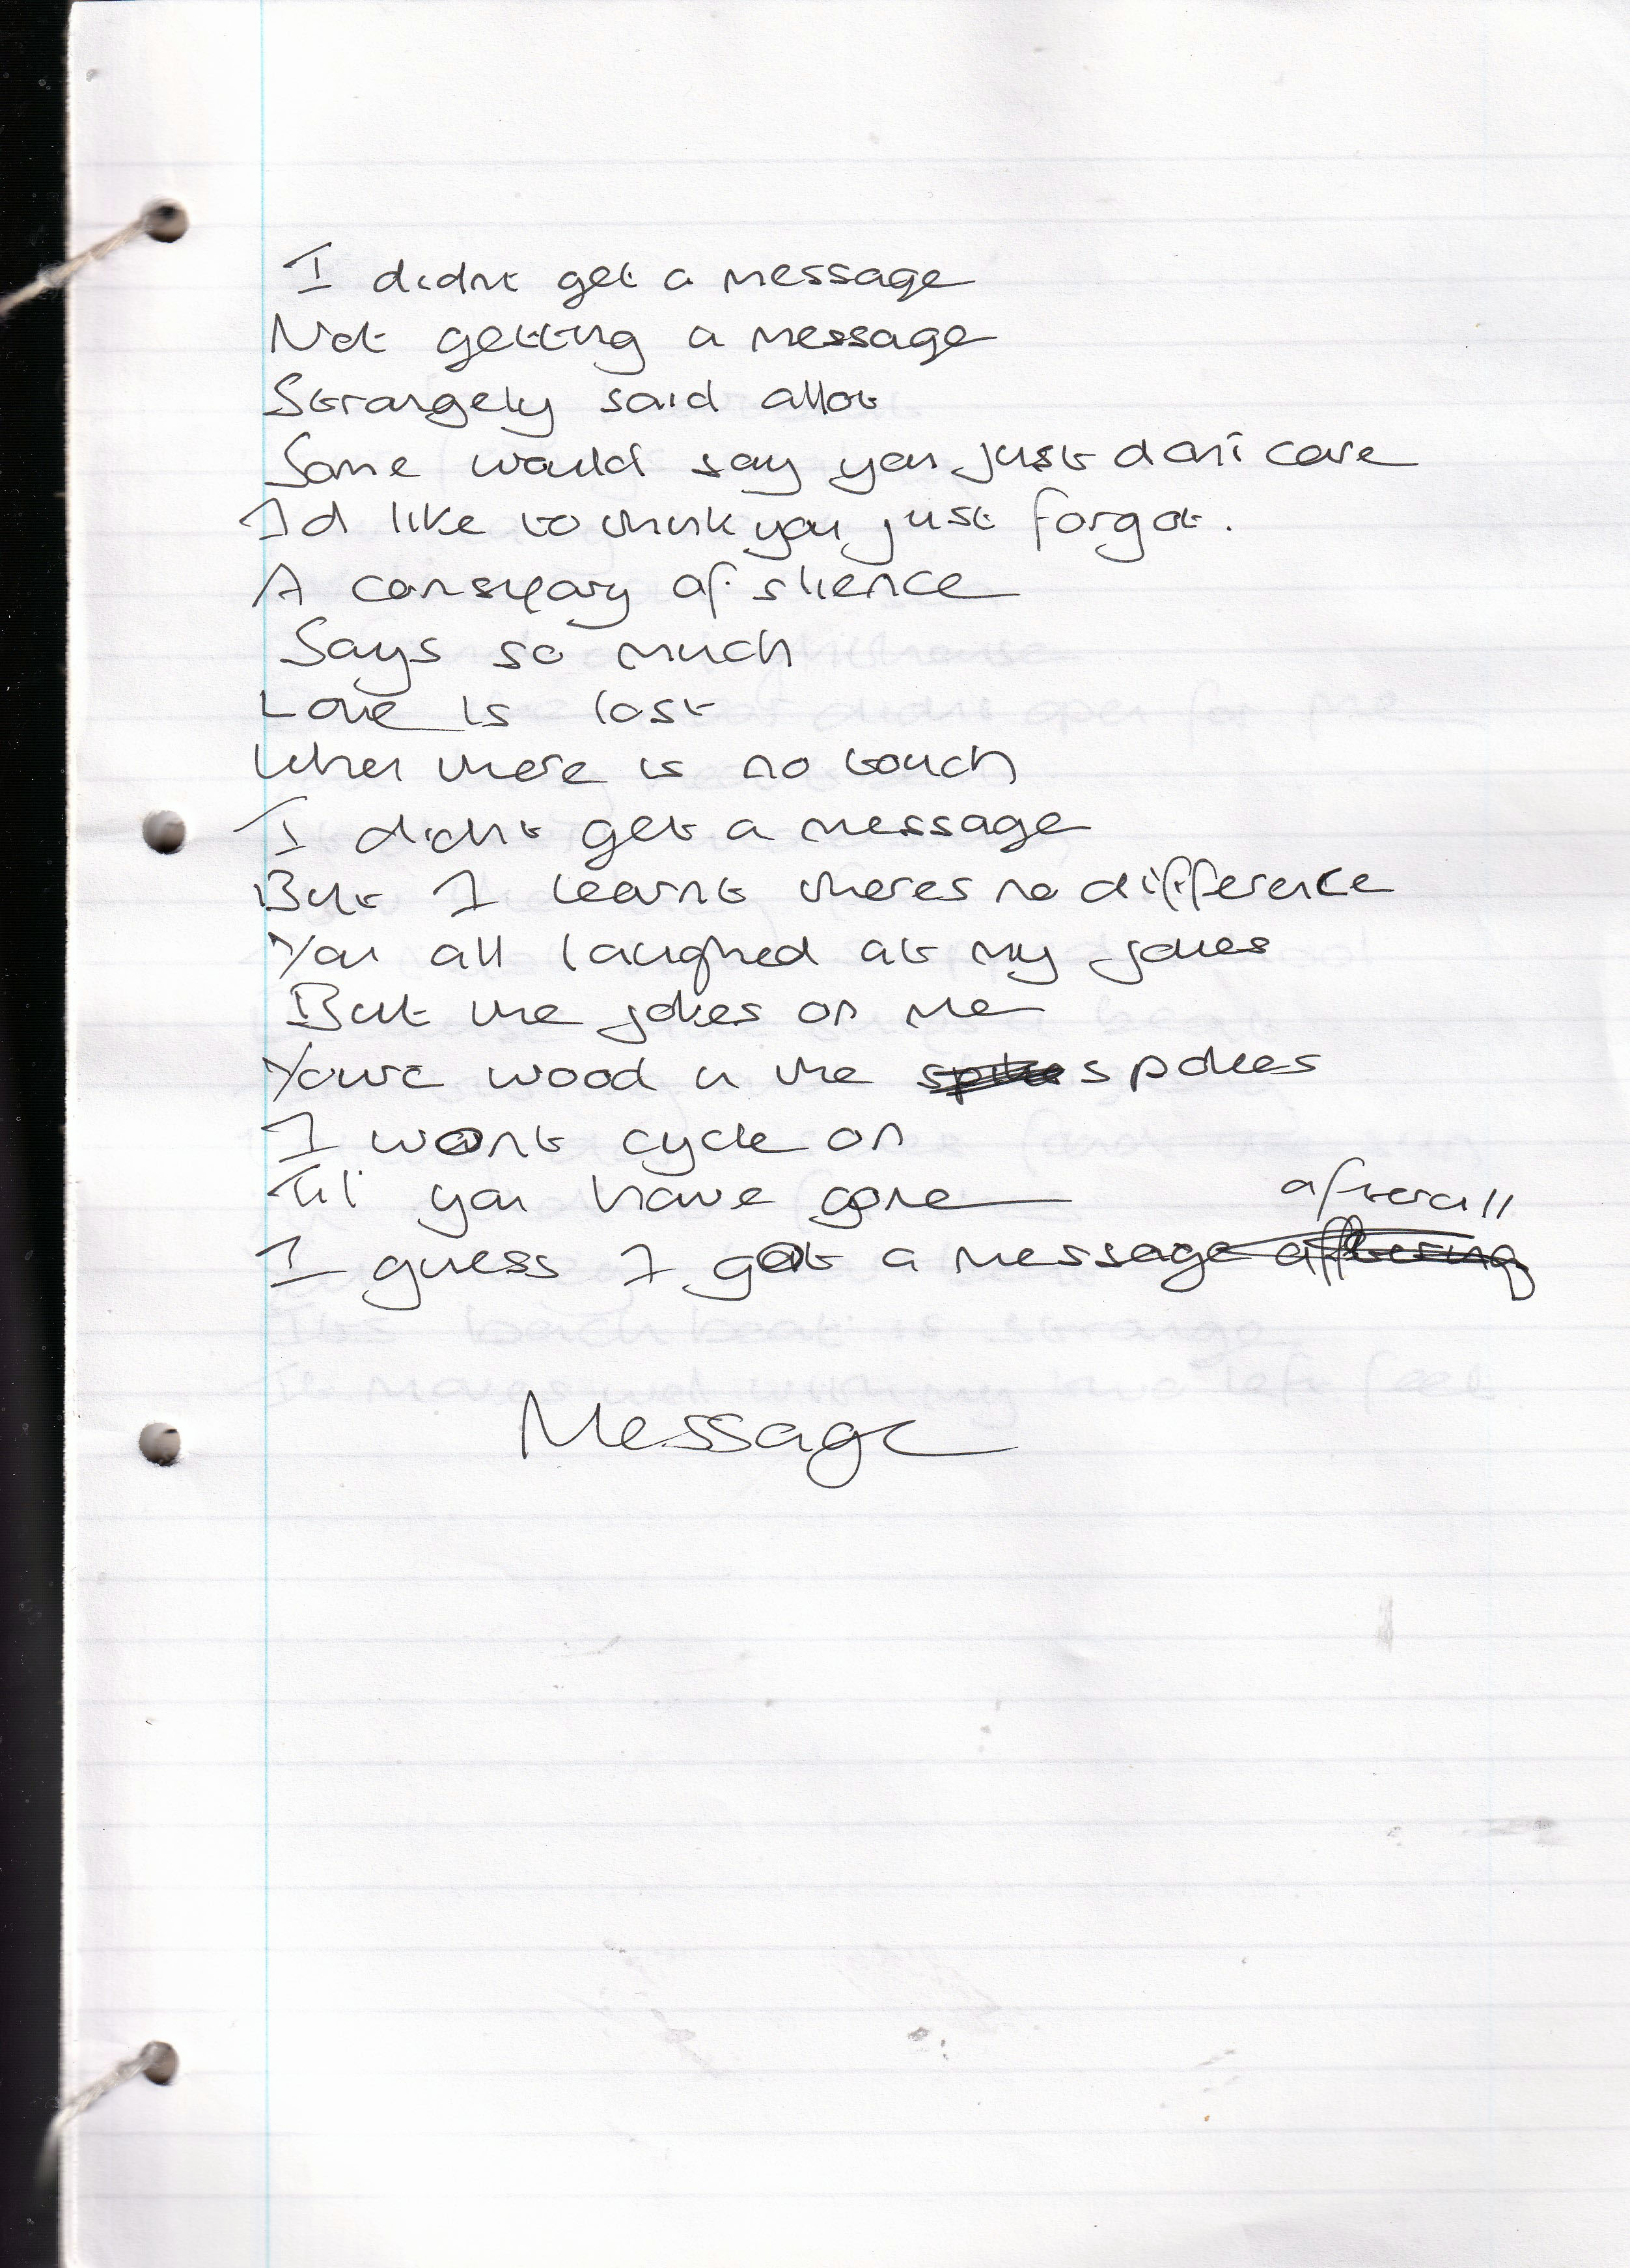 I didnt get a message
Not getting a message
Strangely said allot
Some would say you just don't care
Id like to think you just forgot.
A conspiracy of silence
Says so much
Love is lost
When there is no touch
I didnt get a message
But I learnt theres no difference
You all laughed at my jokes
But the jokes on me
Youre wood in the spokes
I wont cycle on
Til you have gone
afterall
I guess I got a message
Message